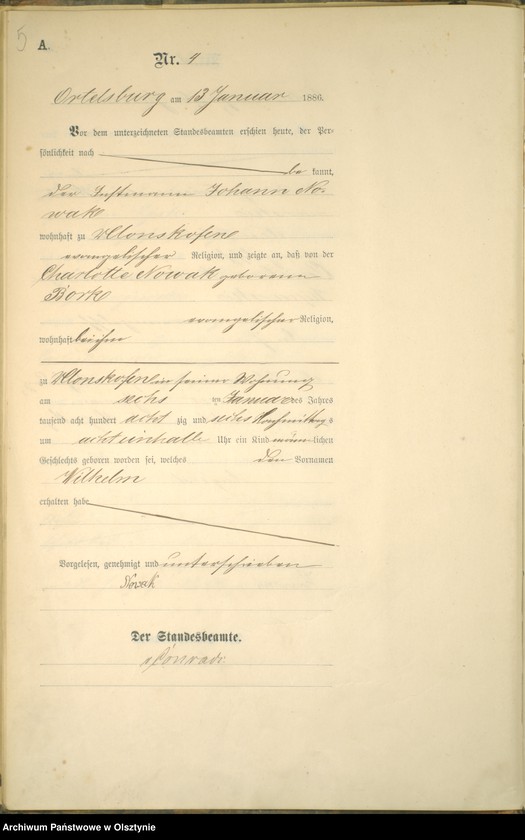 5
A.
Nr. 4
Ortelsburg am 13 Januar 1886.
Vor dem unterzeichneten Standesbeamten erschien heute, der Per-
sönlichkeit nach
be kannt,
der Instmann Johann No-
wak
wohnhaft zu
evangelischer Religion, und zeigte an, daß von der
Charlotte Nowak geborenen
Bork
evangelischer Religion,
wohnhaft bei ihm
zu in seiner Wohnung
am sechs ten Januar des Jahres
tausend acht hundert acht zig und sechs Nachmittags
um acht einhalb Uhr ein Kind männ-lichen
Geschlechts geboren worden sei, welches den Vornamen
Wilhelm
erhalten habe
Vorgelesen, genehmigt und unterschrieben
Nowak
Der Standesbeamte.
Conradi
Archiwum Państwowe w Olsztynie